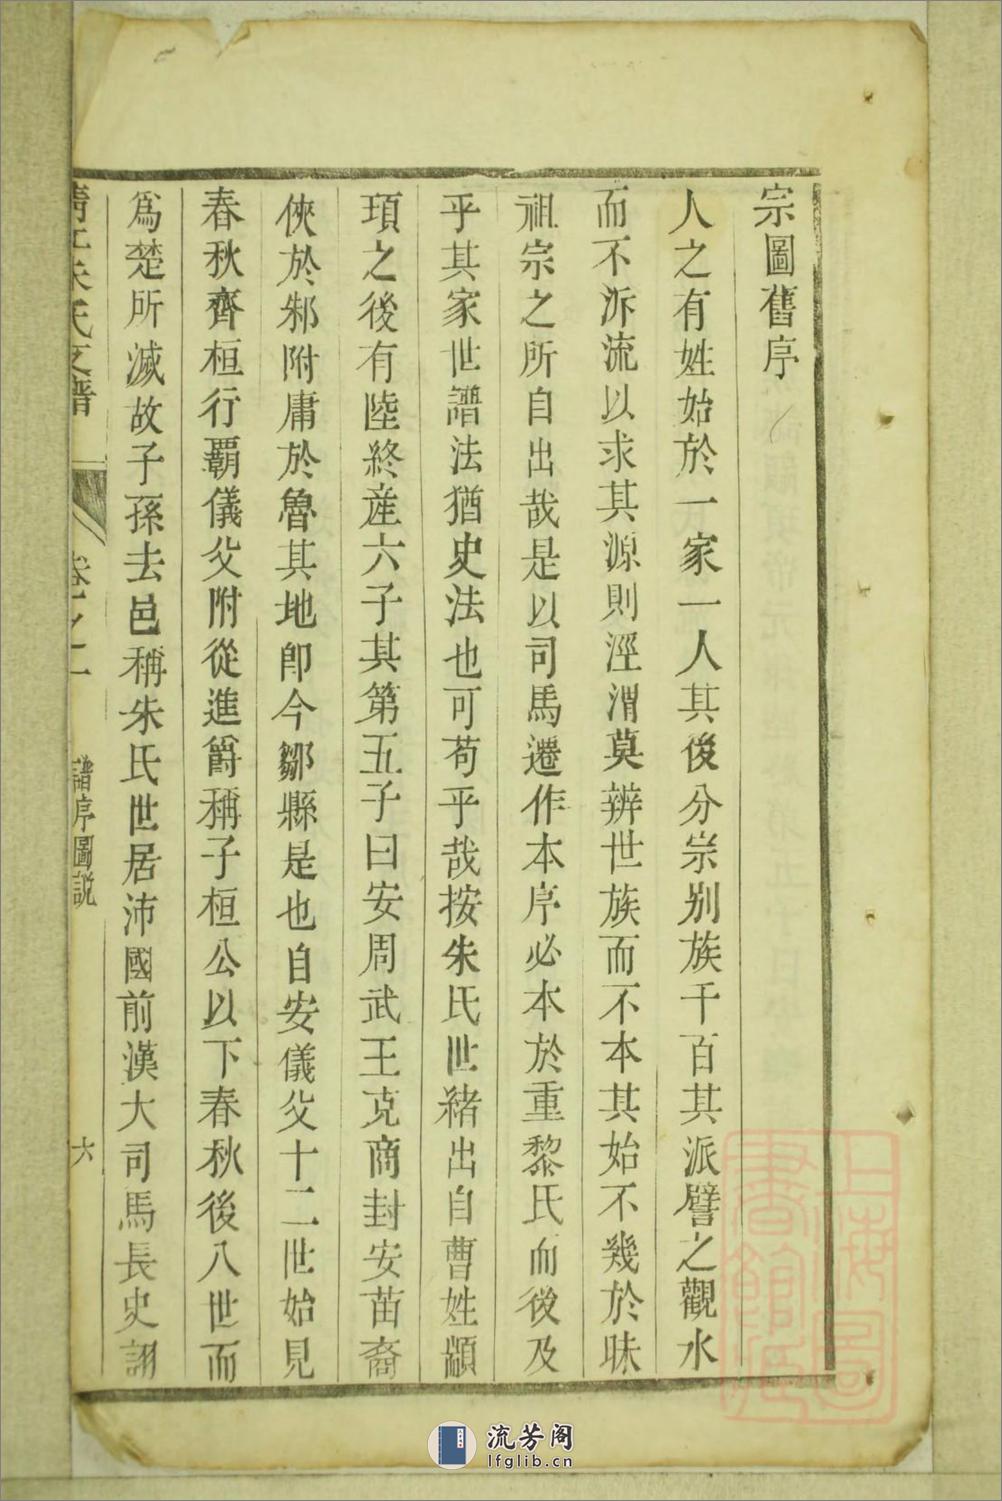 宗圖舊序
人之有姓始於一家一人其後分宗別族千百其派譬之觀水
而不泝流以求其源則涇渭莫辨世族而不本其始不幾於昧
祖宗之所自出哉是以司馬遷作本序必本於重黎氏而後及
乎其家世譜法猶史法也可苟乎哉按朱氏世緒出自曹姓顓
頊之後有陸終産六子其第五子曰安周武王克商封安苗裔
俠於邾附庸於魯其地卽今鄒縣是也自安儀父十二世始見
春秋齊桓行覇儀父附從進爵稱子桓公以下春秋後八世而
爲楚所滅故子孫去邑稱朱氏世居沛國前漢大司馬長史詡
朱氏支譜
卷之一
譜序圖説
六
上海圖書館藏
流芳阁
lfglib.cn